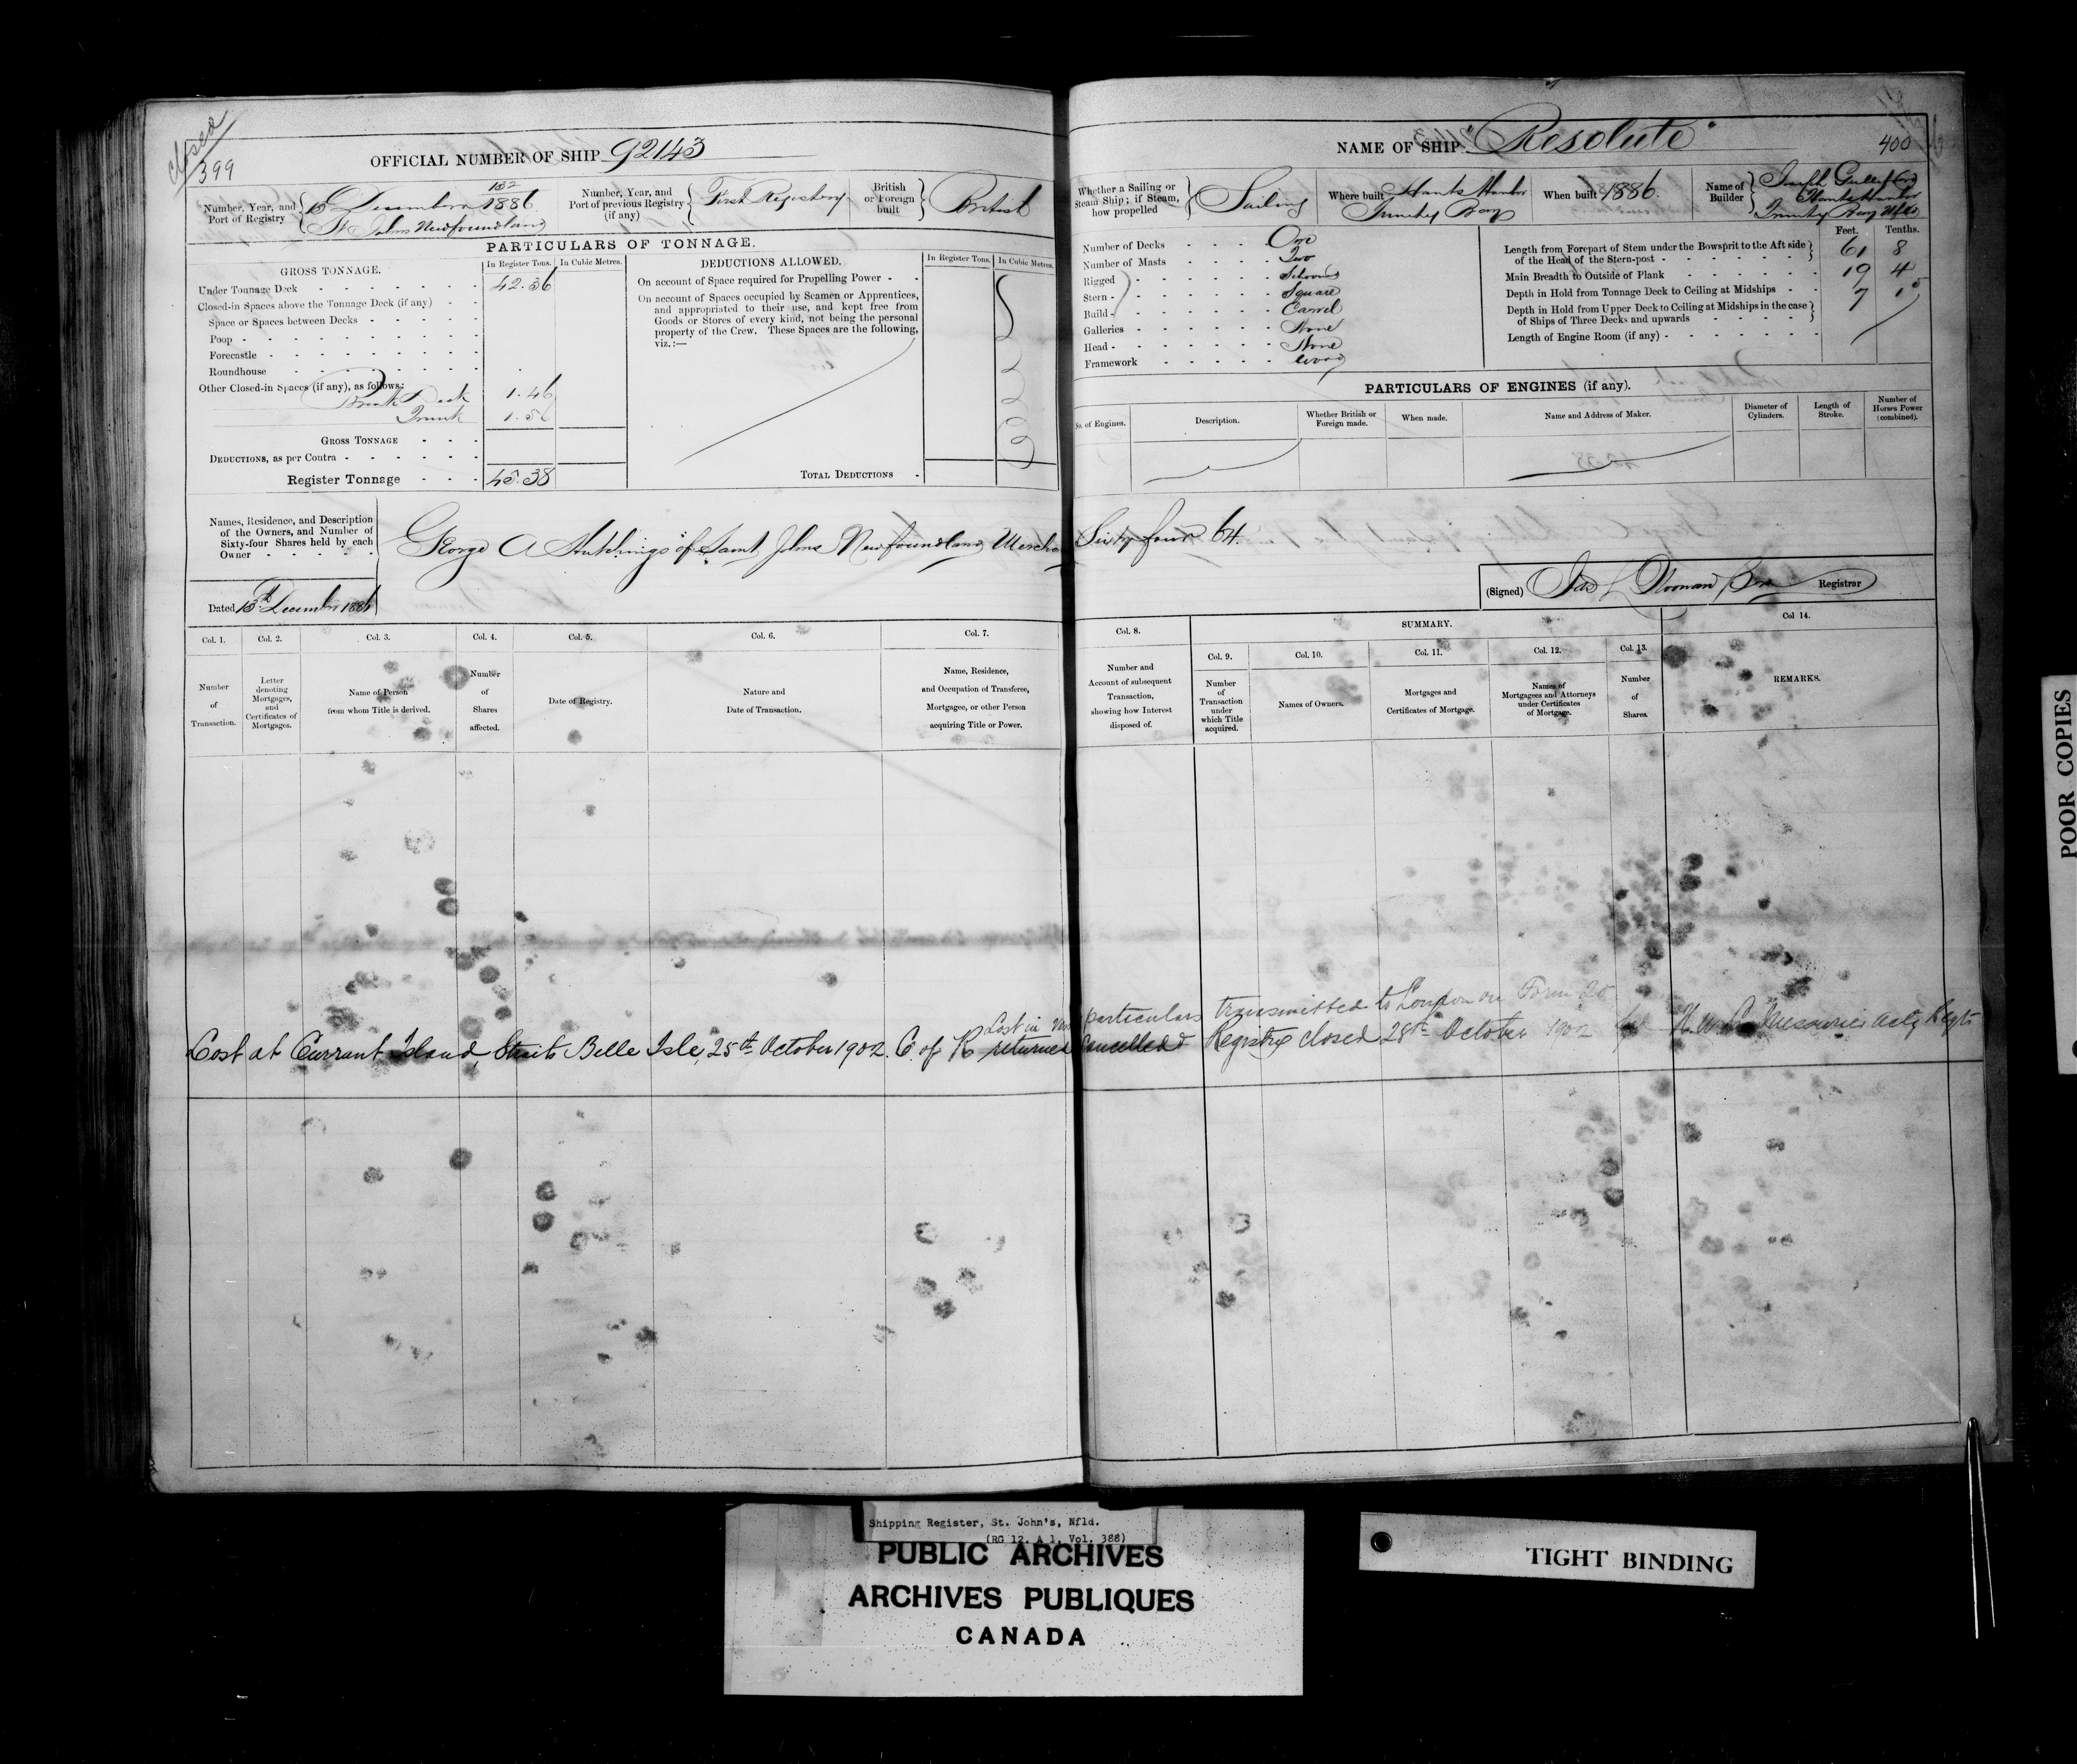 closed
399
OFFICIAL NUMBER OF SHIP 92143
Number, Year, and Port of Registry
132
13 December 1886
St Johns Newfoundland
Number, Year, and Port of previous Registry (if any)
First Registry
British or Foreign built
British
PARTICULARS OF TONNAGE.
GROSS TONNAGE.
In Register Tons.
In Cubic Metres.
Under Tonnage Deck 42.36
Closed-in Spaces above the Tonnage Deck (if any)
Space or Spaces between Decks
Poop
Forecastle
Roundhouse
Other Closed-in Spaces (if any), as follows:
Break Deck 1.46
Trunk 1.56
GROSS TONNAGE
DEDUCTIONS, as per Contra
Register Tonnage 45.38
DEDUCTIONS ALLOWED.
In Register Tons.
In Cubic Metres.
On account of Space required for Propelling Power
On account of Spaces occupied by Seamen or Apprentices,
and appropriated to their use, and kept free from
Goods or Stores of every kind, not being the personal
property of the Crew. These Spaces are the following,
viz.:—
TOTAL DEDUCTIONS
Names, Residence, and Description
of the Owners, and Number of
Sixty-four Shares held by each
Owner
George A Hutchings of Saint Johns Newfoundland Merchant Sixty four 64.
Dated 13th December 1886
NAME OF SHIP "Resolute"
400
Whether a Sailing or Steam Ship; if Steam, how propelled
Sailing
Where built
Hants Harbor
Trinity Bay
When built 1886.
Name of Builder
Hants Harbor
Trinity Bay Nfld
Number of Decks One
Number of Masts Two
Rigged Schooner
Stern Square
Build Carvel
Galleries None
Head None
Framework Wood
Feet. Tenths.
Length from Forepart of Stem under the Bowsprit to the Aft side
of the Head of the Stern-post 61 8
Main Breadth to Outside of Plank 19 4
Depth in Hold from Tonnage Deck to Ceiling at Midships 7 15
Depth in Hold from Upper Deck to Ceiling at Midships in the case
of Ships of Three Decks and upwards
Length of Engine Room (if any)
PARTICULARS OF ENGINES (if any).
No. of Engines.
Description.
Whether British or Foreign made.
When made.
Name and Address of Maker.
Diameter of Cylinders.
Length of Stroke.
Number of Horses Power (combined).
(Signed) Jas L Noonan Registrar
Col. 1.
Col. 2.
Col. 3.
Col. 4.
Col. 5.
Col. 6.
Col. 7.
Number of Transaction.
Letter denoting Mortgages, and Certificates of Mortgages.
Name of Person from whom Title is derived.
Number of Shares affected.
Date of Registry.
Nature and Date of Transaction.
Name, Residence, and Occupation of Transferee, Mortgagee, or other Person acquiring Title or Power.
Col. 8.
SUMMARY.
Col. 9.
Col. 10.
Col. 11.
Col. 12.
Col. 13.
Col 14.
Number and Account of subsequent Transaction, showing how Interest disposed of.
Number of Transaction under which Title acquired.
Names of Owners.
Mortgages and Certificates of Mortgage.
Names of Mortgagees and Attorneys under Certificates of Mortgage.
Number of Shares.
REMARKS.
Lost in particulars transmitted to London on Form 20
Lost at Currant Island, Straits Belle Isle, 25th October 1902. C of R returned cancelled Registry closed 28th October 1902 LeMessurier actg Regtr
Shipping Register, St. John's, Nfld.
(RG 12, A 1, Vol. 388)
PUBLIC ARCHIVES
ARCHIVES PUBLIQUES
CANADA
TIGHT BINDING
POOR COPIES